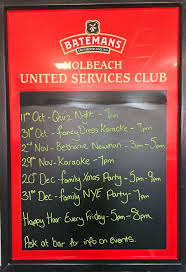 BATEMANS
HOLBEACH
UNITED SERVICES CLUB
11th Oct - Quiz Night - 7pm
31st Oct - fancy Dress Karaoke - 7pm
2nd Nov - Bethanie Newman - 3pm - 5pm
29th Nov - Karaoke - 7pm
20th Dec - family Xmas Party - 5pm - 9pm
31st Dec - family NYE Party - 7pm
Happy Hour Every Friday - 5pm - 8pm
Ask at bar for info on events.